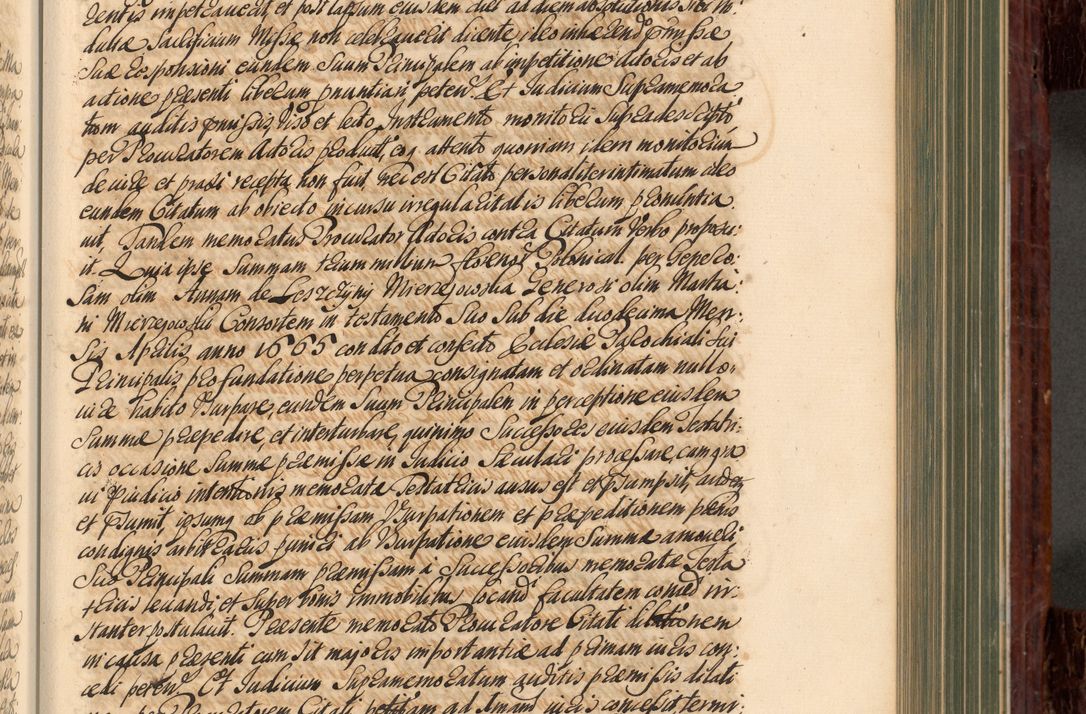 dentis impetraverit, et post lapsum eiusdem diei ad diem absolutionis sibi in:
dultæ Sacrificium Missæ non celebraverit dicente, ideo inhærend præmissæ
suæ responsioni eundem suum Principalem ab impetitione Actoris et ab
actione præsenti liberum pnuntiari peten. Et Judicium Supramemora
tum auditis præmissis viso et lecto Instrumento monitorii supradescripto
per Procuratorem Actoris producti, eoq attento quoniam idem monitorium
de iure et praxi recepta non fuit nec est Citato personaliter intimatum ideo
eundem Citatum ab obiecto incursu irregularitatis liberum pronuntia
vit, Tandem memoratus Procurator Actoris contra Citatum Verbo proposu:
it. Quia ipse Summam trium millium florenor Polonical. per Genero:
sam olim Annam de Loszczyny Mierzejowska Generosi olim Marti:
ni Mierzejowski Consortem in testamento suo sub die duodecima Men:
sis Aprilis anno 1665 condito et confecto Ecclesiæ Parochiali sui
Principalis pro fundatione perpetua consignatam et ordinatam nullo
iure habito Usurpare, eundem suum Principalem in perceptione eiusdem
Summæ præpedire, et interturbare, quinimo Successores eiusdem Testatri:
cis occasione Summæ præmissæ in Judicio Sæculari processare, cum gra
vi Pjudicio intentionis memoratæ Testatricis ausus est et Psumpsit, audetq
et Psumit, ipsumq ob præmissam Usurpationem et præpeditionem pænis
condignis arbitrariis puniri ab Usurpatione eiusdem Summæ amoveri
suo Principali Summam præmissam a Successoribus memoratæ Testa
tricis levandi, et super bonis immobilibus locandi facultatem conced in:
stanter postulavit. Præsente memorato Procuratore Citati dilationem
in causa præsenti cum sit majoris importantiæ ad primam iuris con:
cedi peten. Et Judicium Supramemoratum auditis præmissis dilati
per Procuratorem Citati petitam ad Imam iuris concessit, termi: